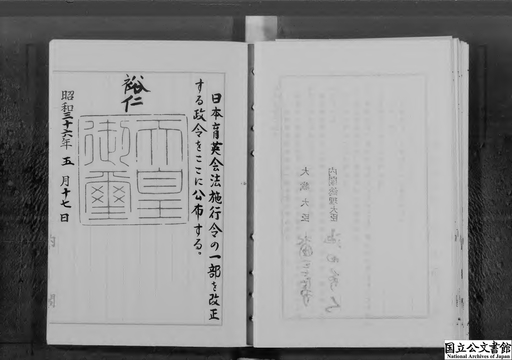 日本育英会法施行令の一部を改正
する政令をここに公布する。
裕仁
天皇
御璽
昭和三十六年五月十七日
内閣総理大臣
大蔵大臣
国立公文書館
National Archives of Japan